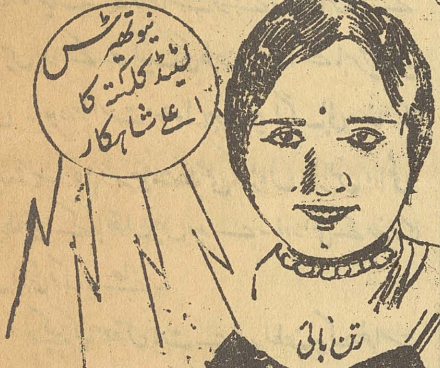 نیو تھیٹرٹس
لیٹیڈ کلکتہ کا
اعلےٰ شاہکار
رتن بائی